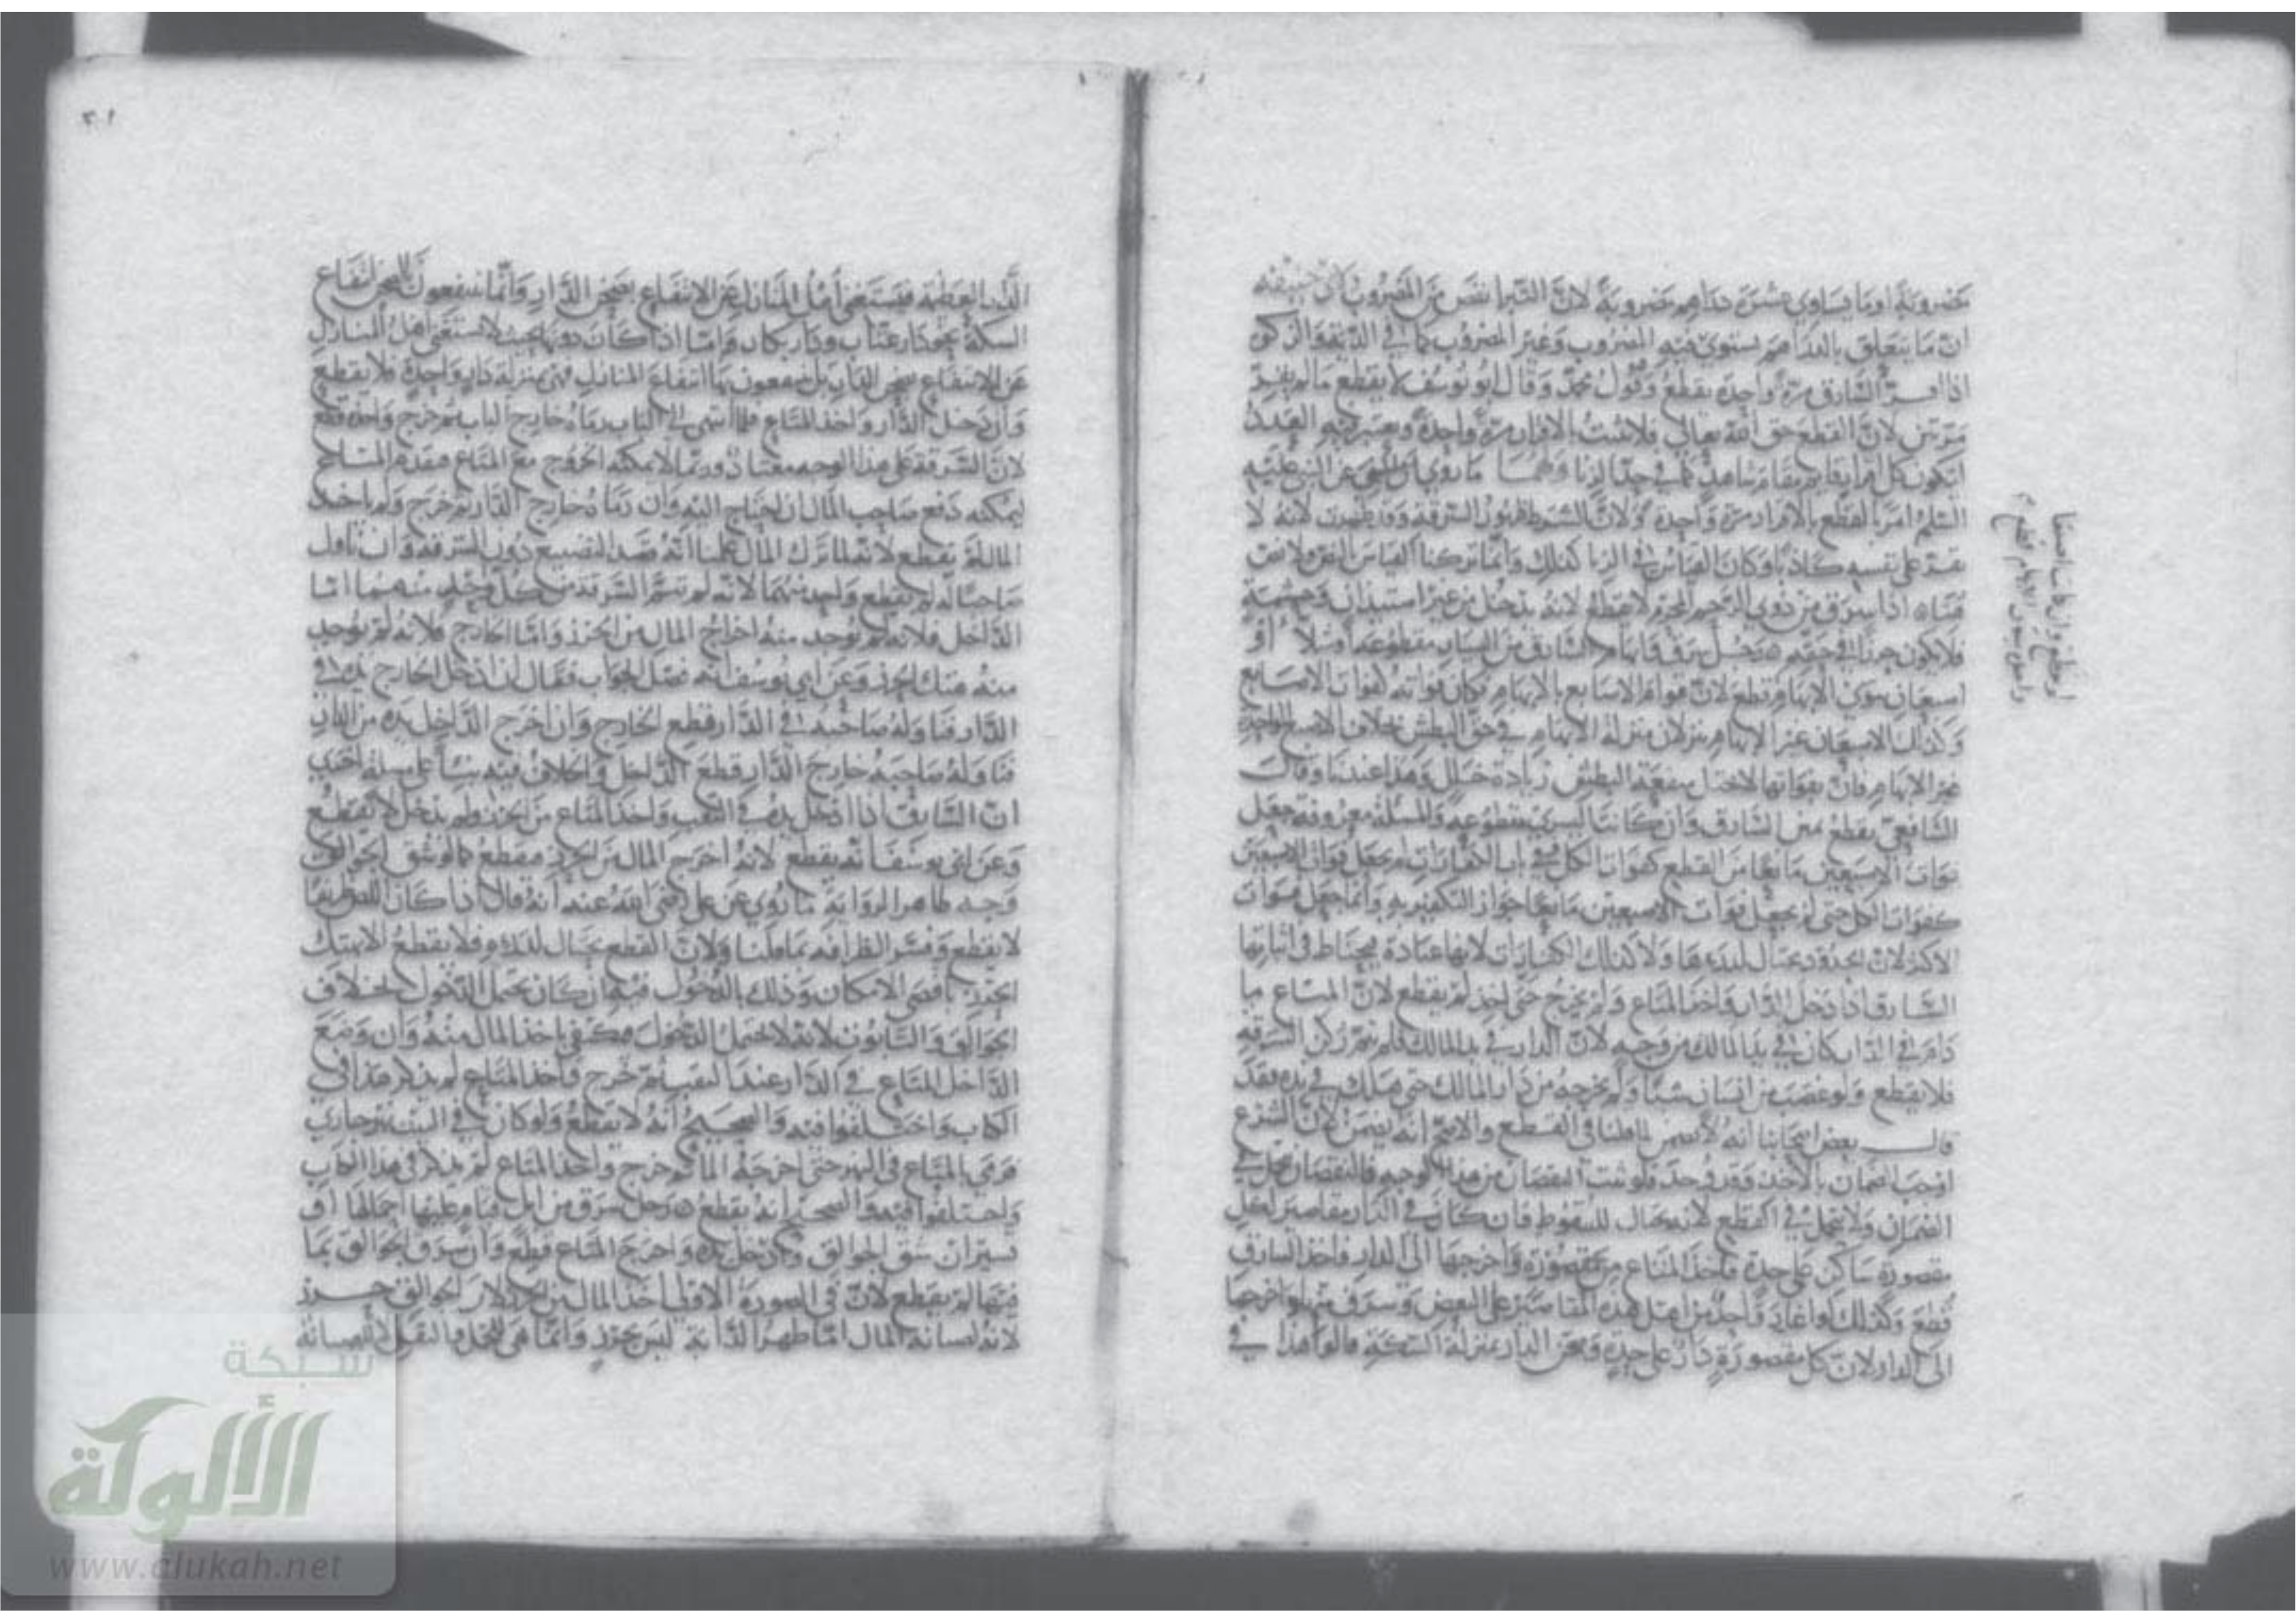 مضروبة او ما يساوي عشرة دراهم مضروبة لان التبر انقص من المضروب
ان ما يتعلق بالدراهم يستوي فيه المضروب وغير المضروب كما في الدية والزكوة
اذا اقر السارق مرة واحدة يقطع وقول محمد وقال ابو يوسف لا يقطع ما لم يقر
مرتين لان القطع حق الله تعالى فلا يثبت بالاقرار مرة واحدة ويعتبر فيه العدد
ليكون كل اقرار قائم مقام شاهد كما في حد الزنا ولهما ما روي ان النبي عليه
السلم امر بالقطع بالاقرار مرة واحدة ولان الشرط ظهور السرقة وقد ظهرت لانه لا
يقر على نفسه كاذبا وكان القياس في الزنا كذلك وانما تركنا القياس بالنص ولا نص
هنا اذا سرق من ذوي الرحم المحرم لا قطع لانه يدخل من غير استيذان
فلا يكون حرزا في حقهم رجل سرق وابهام السارق من اليسار مقطوعة او شلاء او
اصبعان سوى الابهام لم يقطع لان قوام الاصابع بالابهام وكان فواته كفوات الاصابع
وكذلك الاصبعان غير الابهام ينزلان منزلة الابهام في حق البطش بخلاف الاصبع الواحدة
غير الابهام فان بفواتها لا تختل منفعة البطش زيادة خلل وهذا عندنا وقال
الشافعي يقطع يمين السارق وان كانت اليسرى مقطوعة والمسئلة معروفة جعل
فوات الاصبعين مانعا من القطع كفوات الكل وفي باب الكفارات لم يجعل فوات الاصبعين
كفوات الكل حتى لم يجعل فوات الاصبعين مانعا جواز التكفير به وانما جعل فوات
الاكثر لان الحدود يحتال لدرءها ولا كذلك الكفارات لانها عبادة يحتاط في اثباتها
السارق اذا دخل الدار واخذ المتاع ولم يخرج حتى اخذ لم يقطع لان المتاع ما
دام في الدار كان في يد المالك من وجه لان الدار في يد المالك فلم يتم ركن السرقة
فلا يقطع ولو غصب من انسان شيئا ولم يخرجه من دار المالك حتى هلك في يده فقد
قال بعض اصحابنا انه لا يضمن لما قلنا في القطع والاصح انه يضمن لان الشرع
اوجب الضمان بالاخذ وقد وجد فلو ثبت النقصان من هذا الوجه فالنقصان يحل في
الضمان ولا يحل في القطع لانه يحتال للسقوط فان كان في الدار مقاصير لكل
مقصورة ساكن على حدة فاخذ المتاع من مقصورة واخرجها الى الدار فاخذ السارق
قطع وكذلك لو اغار واحد من اهل هذه المقاصير على البعض وسرق منها واخرجها
الى الدار لان كل مقصورة دار على حدة وصحن الدار بمنزلة السكة قالوا هذا في
٢٠١
الدار العظيمة فيستغني اهل المنازل عن الانتفاع بصحن الدار وانما ينتفعون بالصحن انتفاع
السكة نحو دار عتاب ودار بكار واما اذا كان دونها بحيث لا يستغني اهل المنازل
عن الانتفاع بصحن الدار بل ينتفعون بها انتفاع المنازل فهي بمنزلة دار واحدة فلا يقطع
وان دخل الدار واخذ المتاع فلما انتهى الى الباب رماه خارج الباب ثم خرج واخذه قطع
لان السرقة على هذا الوجه معتاد وربما لا يمكنه الخروج مع المتاع فيقدم المتاع
ليمكنه دفع صاحب المال ان احتاج اليه وان رماه خارج الدار ثم خرج ولم ياخذ
المال لم يقطع لانه لما ترك المال علمنا انه قصد التضييع دون السرقة وان ناول
صاحبا له لم يقطع واحد منهما لانه لم تتم السرقة من كل واحد منهما اما
الداخل فلانه لم يوجد منه اخراج المال من الحرز واما الخارج فلانه لم يوجد
منه هتك الحرز وعن ابي يوسف انه فصل الجواب فقال ان ادخل الخارج يده في
الدار فناوله صاحبه في الدار قطع الخارج وان اخرج الداخل يده من الدار
فناوله صاحبه خارج الدار قطع الداخل والخلاف فيه بناء على مسئلة اخرى
ان السارق اذا ادخل يده في النقب واخذ المتاع من الحرز ولم يدخل لا يقطع
وعن ابي يوسف انه يقطع لانه اخرج المال من الحرز فيقطع كما لو شق الجوالق
وجه ظاهر الرواية ما روي عن علي رضي الله عنه انه قال اذا كان اللص ظريفا
لا يقطع وفسر الظرافة بما قلنا ولان القطع يحتال لدرءه فلا يقطع الا بهتك
الحرز باقصى الامكان وذلك بالدخول فيما كان يحتمل الدخول بخلاف
الجوالق والصندوق لانه لا يحتمل الدخول فيكتفى باخذ المال منه وان وضع
الداخل المتاع في الدار عند النقب ثم خرج واخذ المتاع لم يذكر هذا في
الكتاب واختلفوا فيه والصحيح انه لا يقطع ولو كان في البيت نهر جار
فرمى بالمتاع في النهر حتى اخرجه الماء ثم خرج واخذ المتاع لم يذكر في هذا الكتاب
واختلفوا فيه والصحيح انه يقطع رجل سرق من ابل قيام عليها احمالها او
تسير ان شق الجوالق وادخل يده واخرج المتاع قطع وان سرق الجوالق بما
فيها لم يقطع لان في الصورة الاولى اخذ المال من الحرز لان الجوالق حرز
لانه لصيانة المال اما ظهر الدابة ليس بحرز وانما هي للحمل والنقل لا للصيانة
شبكة
الألوكة
www.alukah.net